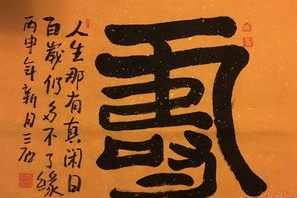 人生那有真闲日
百歲仍多不了缘
丙申年新月三石